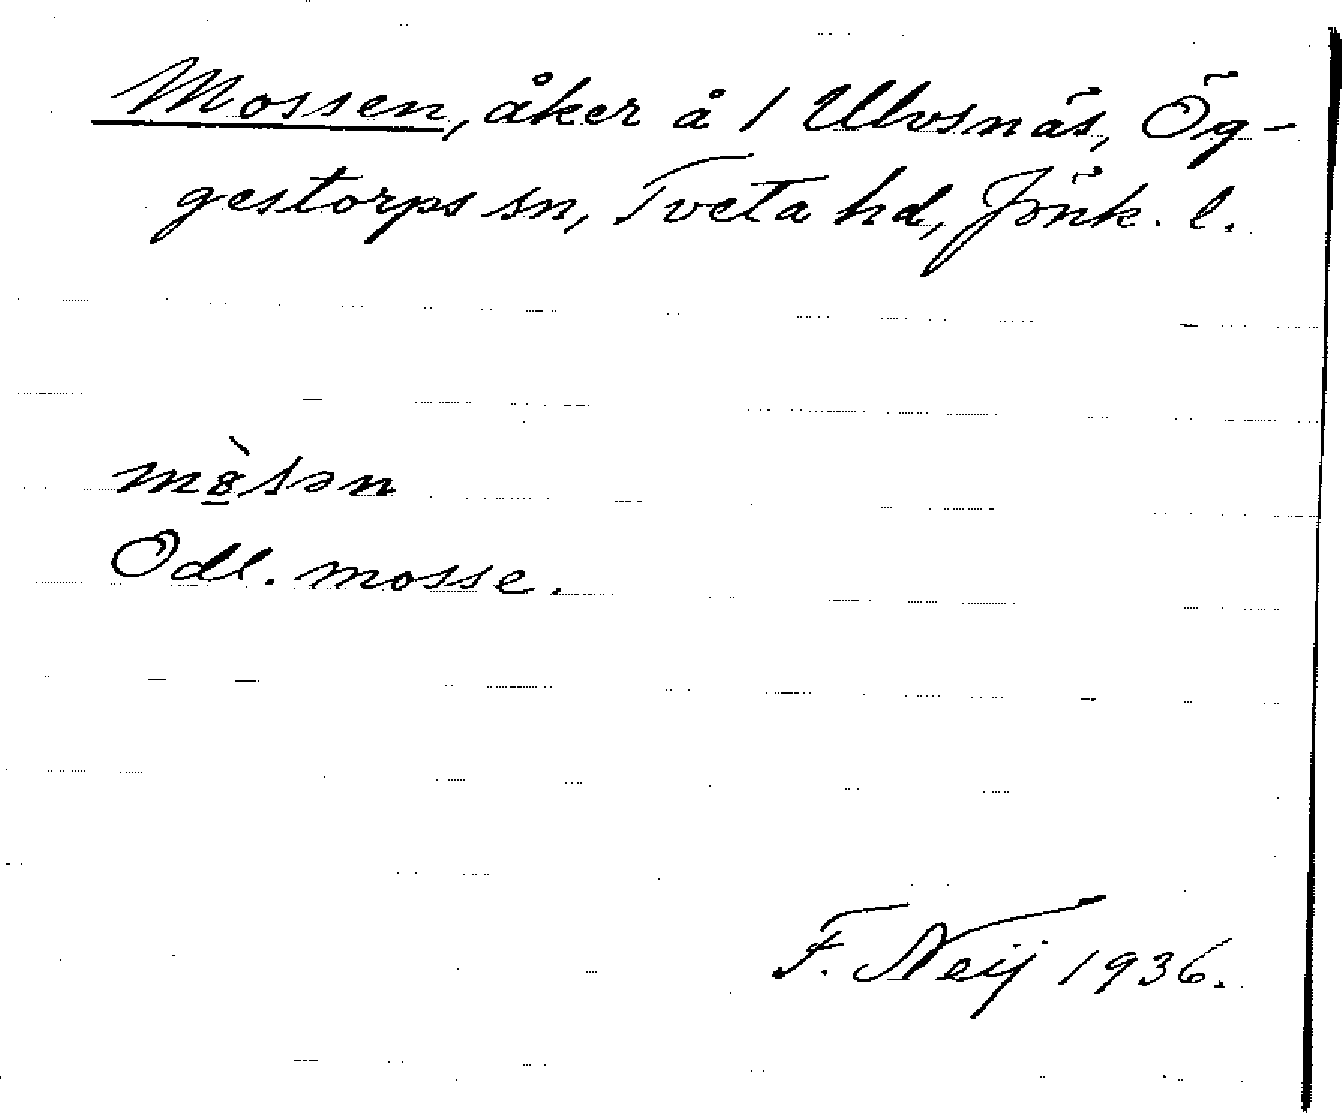 Mossen, åker å 1 Ulvsnäs, Ög-
gestorps sn, Tveta hd, Jönk. l.
mò᷂sən
Odl. mosse.
F. Neij 1936.